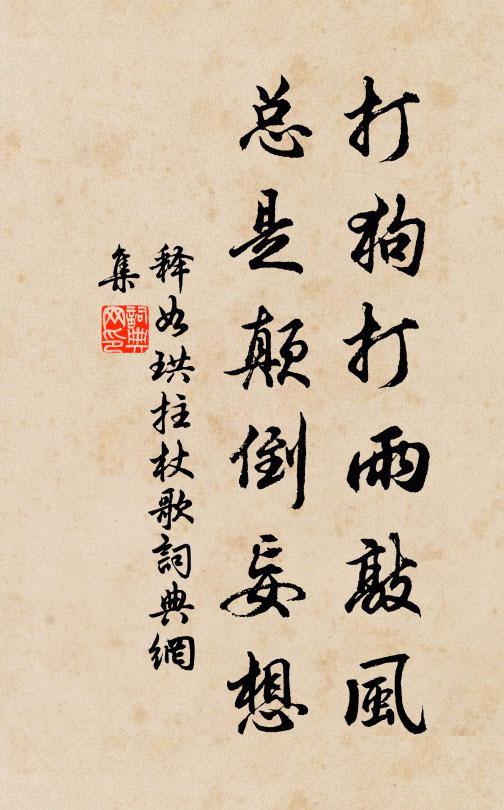 打狗打雨敲风
总是颠倒妄想
释如珙拄杖歌詞典網
集
詞典
网印